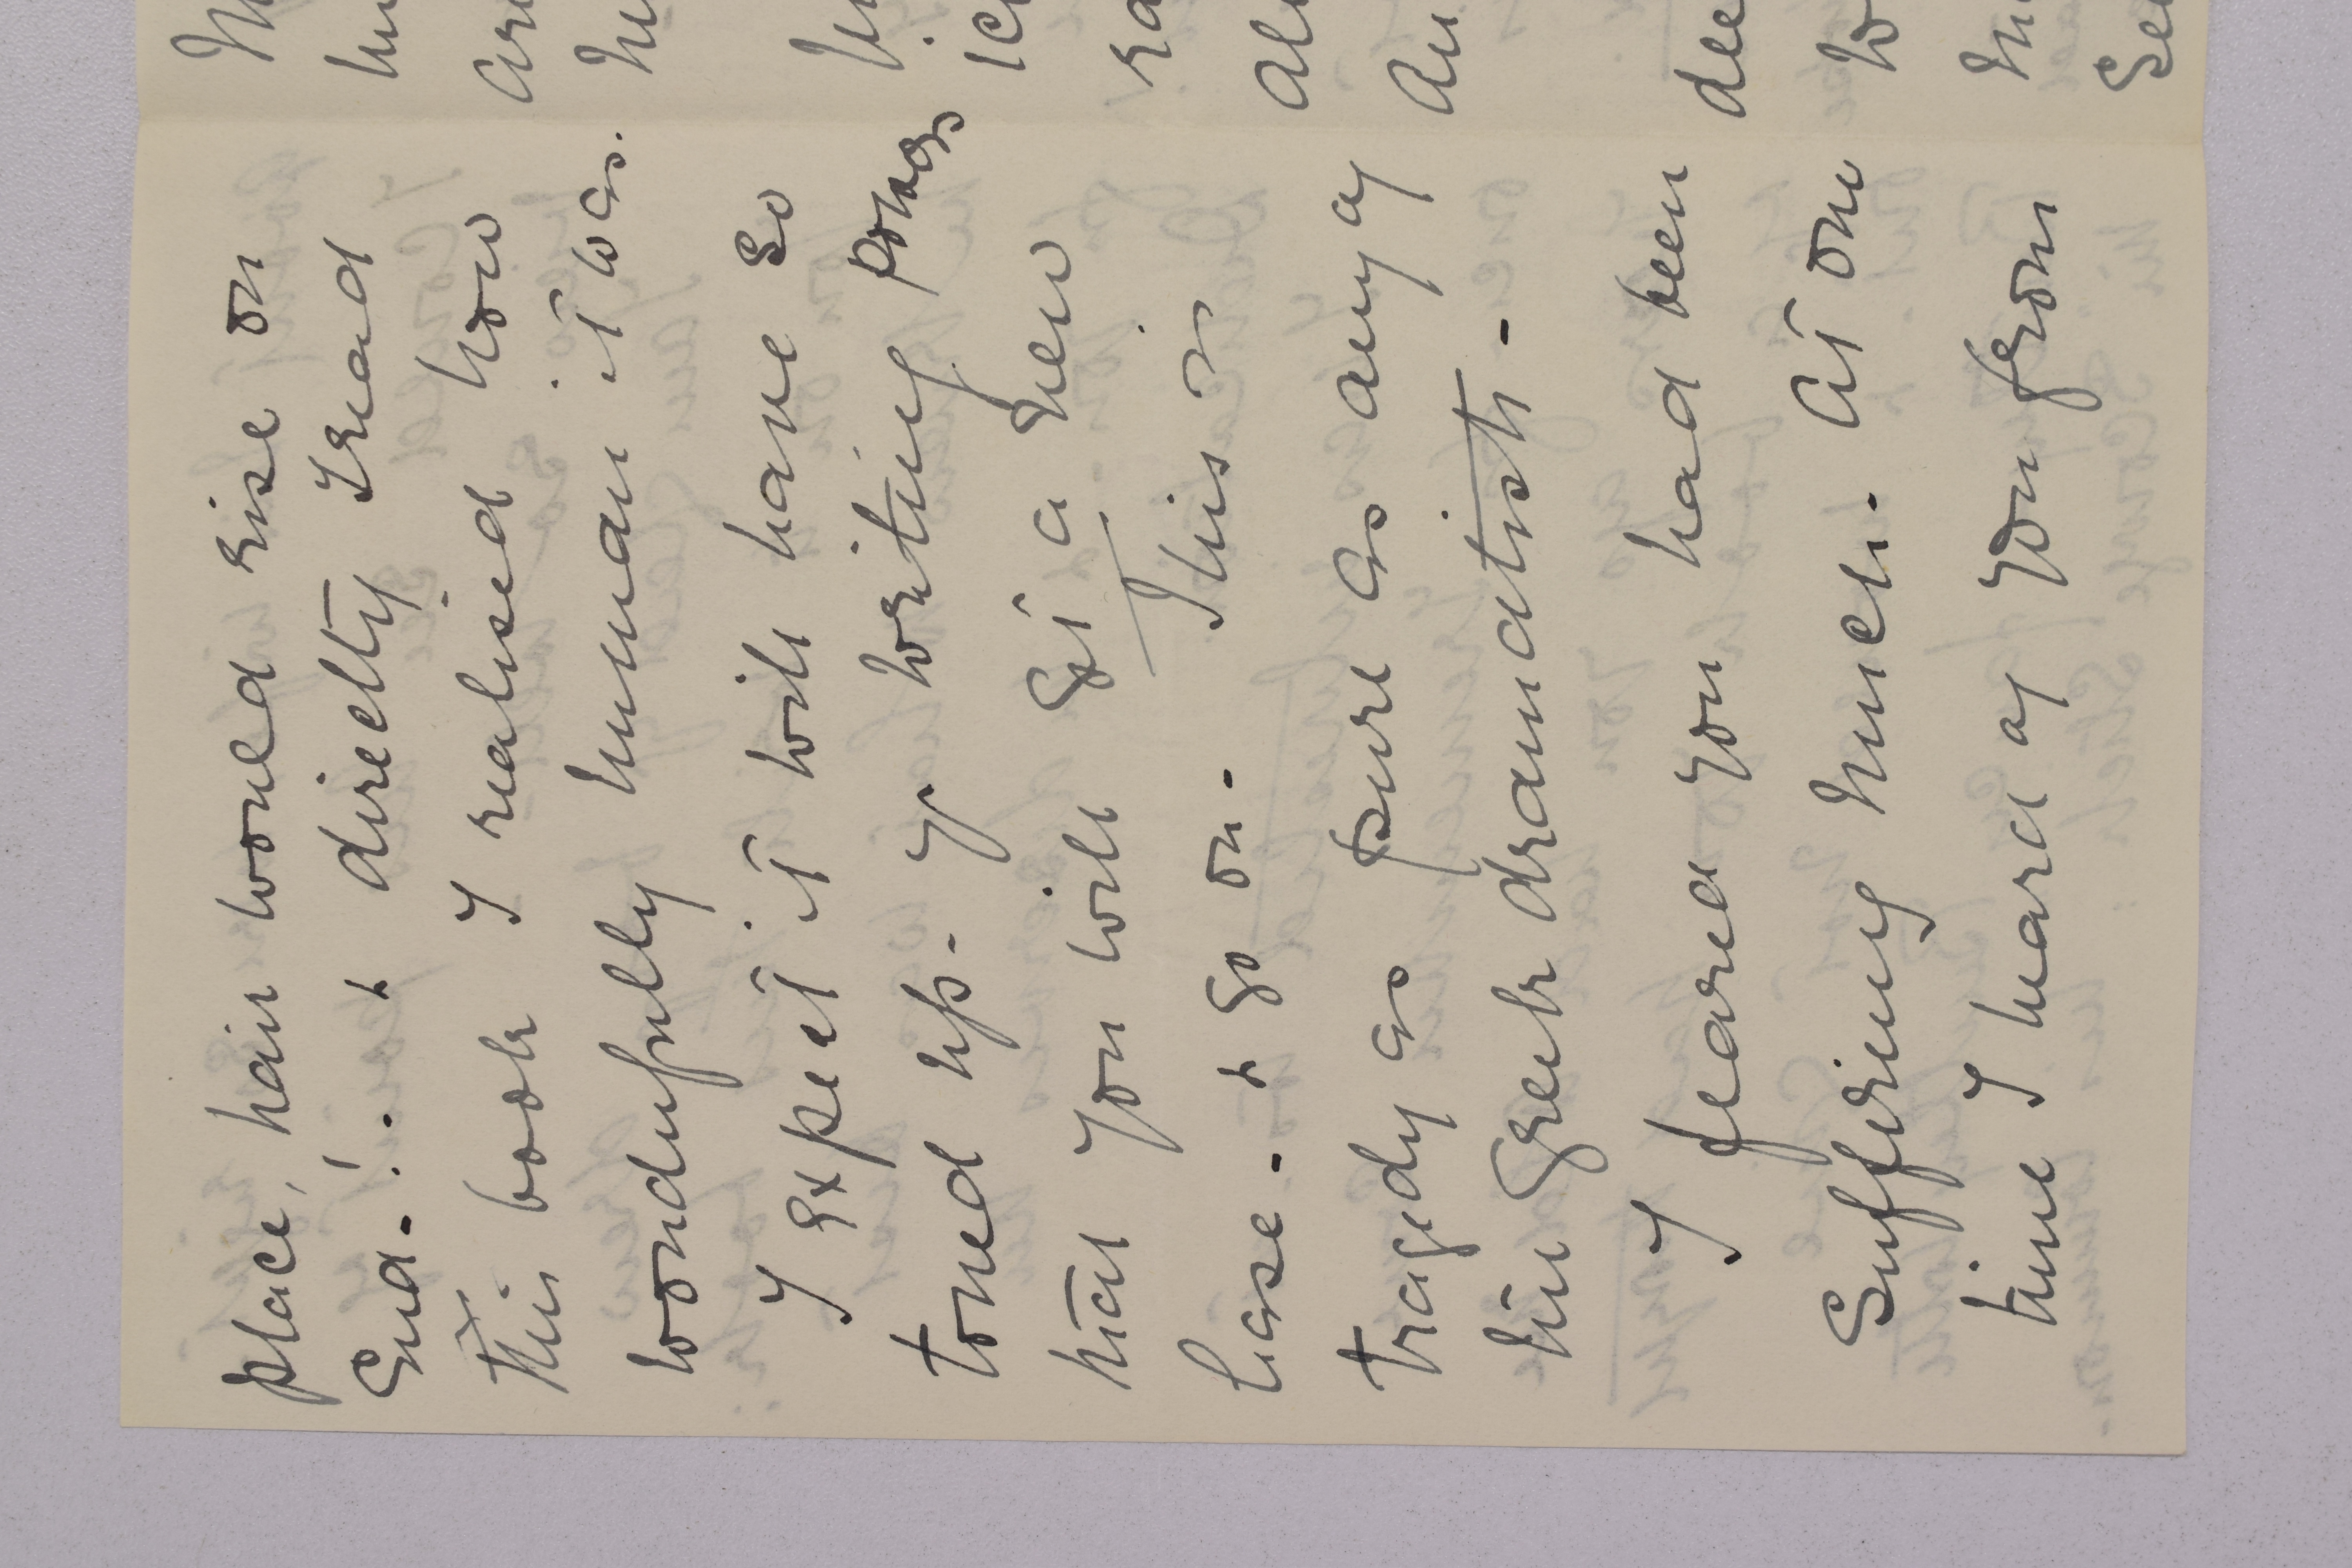 place, hair would rise on
End - ! . & directly I read
this book I realised how
wonderfully human it was.
I expect it will have so
toned up - yr writing powers
that you will get a new
lease - & go on - This is
tragedy as pure as any of
the Greek dramatists -
I feared you had been
Suffering much - At one
time I heard of you from